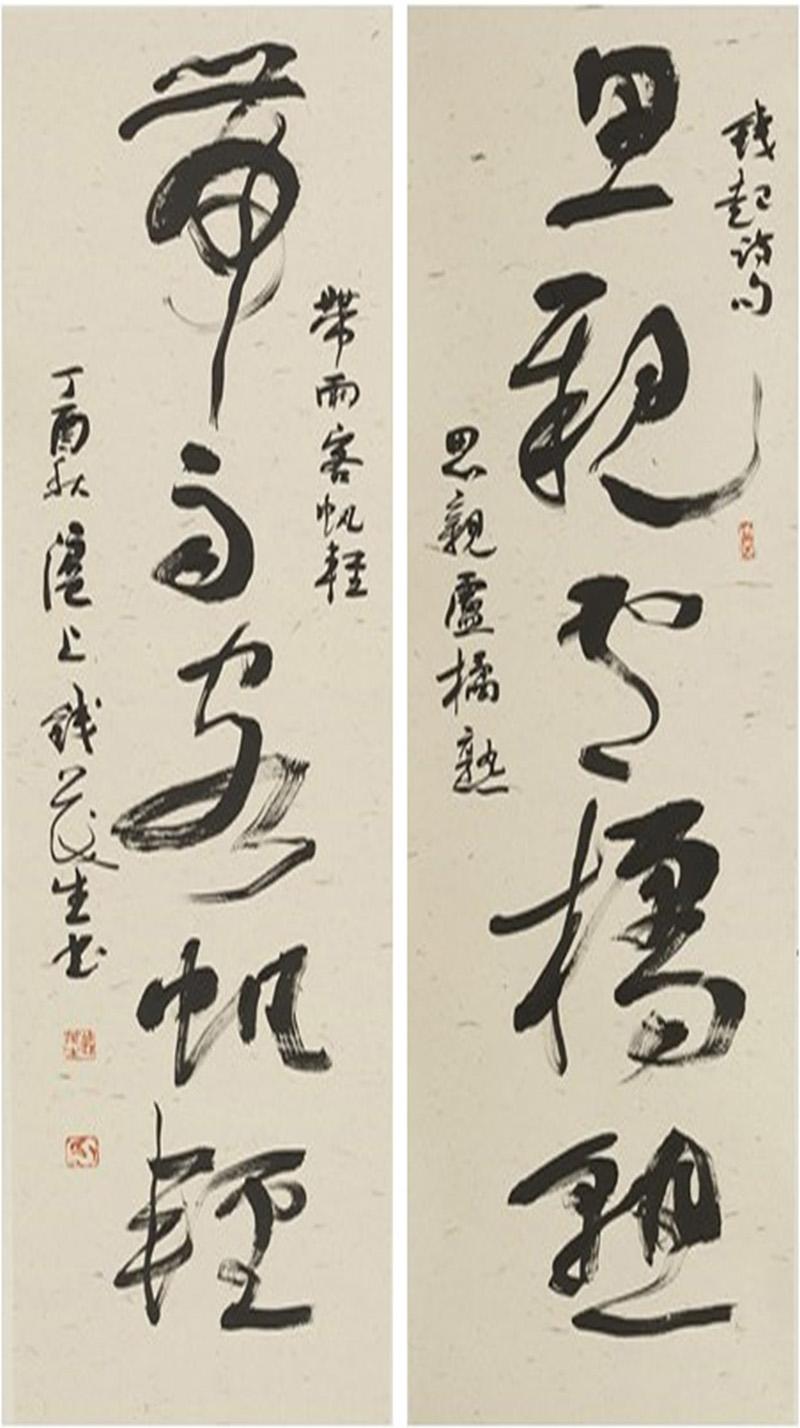 錢起詩句
思親盧橘熟
思親盧橘熟
帶雨客帆輕
帶雨客帆輕
丁酉秋滬上錢茂生書